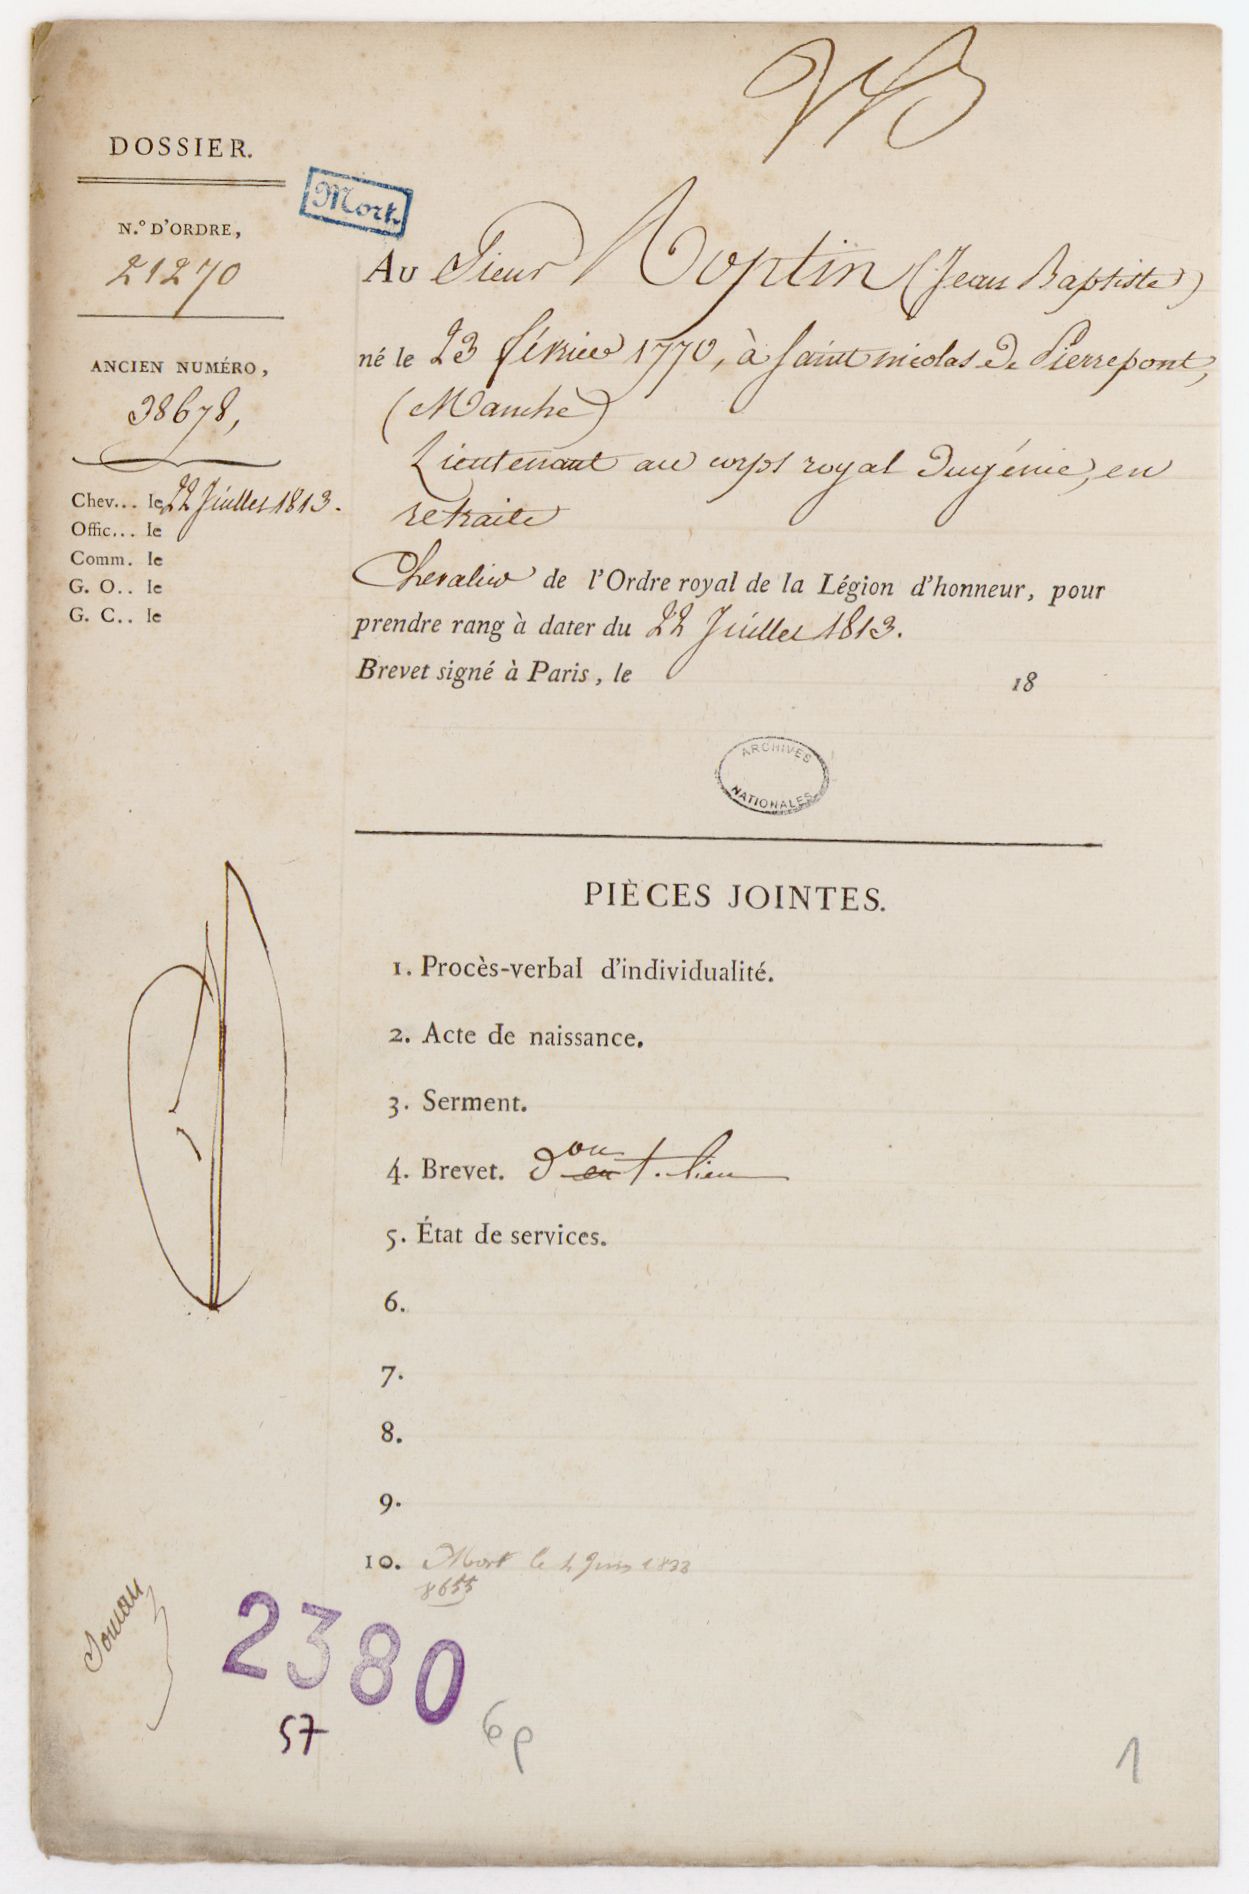 DOSSIER.
N.º D'ORDRE,
21270
ANCIEN NUMÉRO,
38678,
Chev... le 22 Juillet 1813.
Offic... le
Comm. le
G. O.. le
G. C.. le
Mort.
AU Sieur Noptin (Jean Baptiste)
né le 23 février 1770, à Saint nicolas de Pierrepont,
(Manche)
Lieutenant au corps royal du génie, en
retraite
Chevalier de l'Ordre royal de la Légion d'honneur, pour
prendre rang à dater du 22 Juillet 1813.
Brevet signé à Paris, le 18
ARCHIVES
NATIONALES
PIÈCES JOINTES.
1. Procès-verbal d'individualité.
2. Acte de naissance.
3. Serment.
4. Brevet.
5. État de services.
6.
7.
8.
9.
10. Mort le 4 Juin 1833
8655
2380
57
6p
1